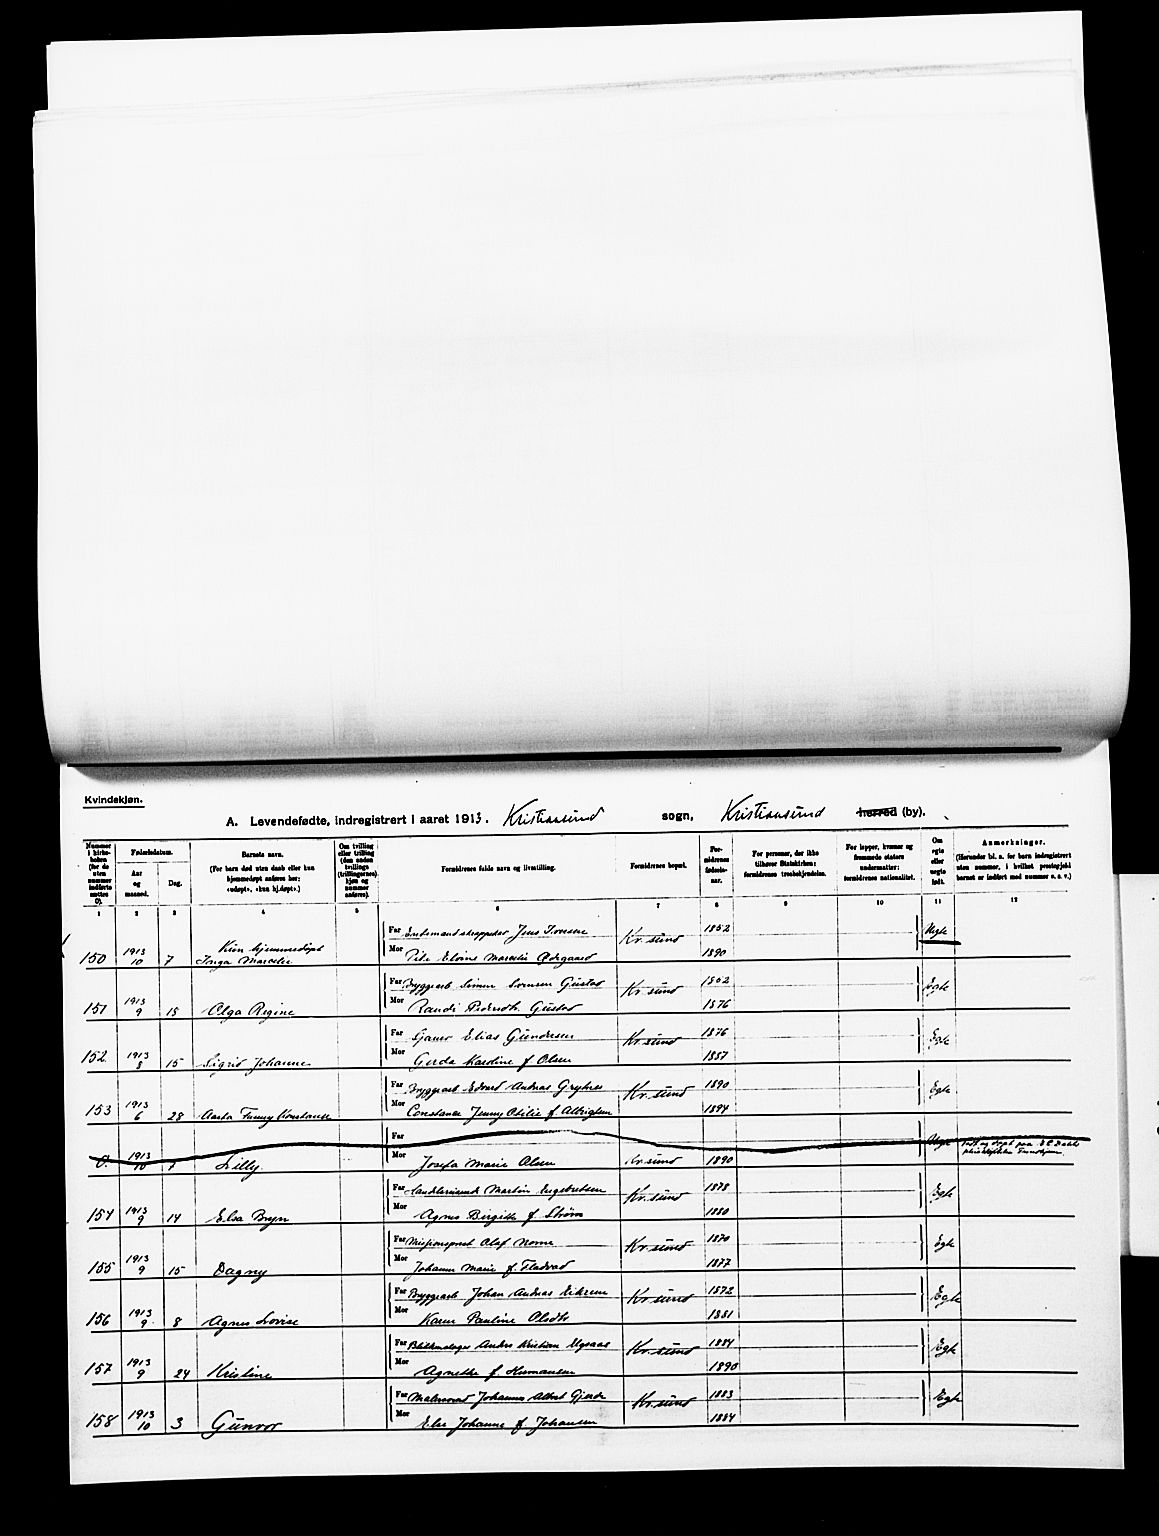 Kvindekjøn.
A. Levendefødte, indregistrert i aaret 1913. Kristiansund sogn, Kristiansund herred (by).
Nummer i kirkeboken (for de uten nummer indførte sættes 0).
Fødselsdatum.
Aar og maaned.
Dag.
Barnets navn.
(For barn død uten daab eller kun hjemmedøpt anføres her: «udøpt», «kun hj.døpt».)
Om tvilling eller trilling (den anden tvillings (trillingernes) kjøn og nummer anføres).
Forældrenes fulde navn og livsstilling.
Forældrenes bopæl.
Forældrenes fødselsaar.
For personer, der ikke tilhører Statskirken: forældrenes trosbekjendelse.
For lapper, kvæner og fremmede staters undersaatter: forældrenes nationalitet.
Om egte eller uegte født.
Anmerkninger.
(Herunder bl. a. for barn indregistrert uten nummer, i hvilket prestegjeld barnet er indført med nummer o. s. v.)
1 2 3 4 5 6 7 8 9 10 11 12
150 1913 10 7 Kun hjemmedøpt Inga Marcelie
Far Jens Iversen Kr.sund 1852 Uegte
Mor Marcelie Ødegaard 1890
151 1913 9 15 Olga Regine
Far Bryggearb Simon Gustad Kr.sund Egte
Mor Randi Gustad 1876
152 1913 8 15 Sigrid Johanne
Far Elias Gundersen Kr.sund 1876 Egte
Mor Gerda Kardine f Olsen 1887
153 1913 6 28 Aasta Fanny Konstanse
Far Bryggearb Edvard Andreas Kr.sund 1890 Egte
Mor Constanse Jenny Otilie f Albrigtsen 1894
0. 1913 10 Lilly
Far
Mor Josefa Marie Olsen Kr.sund 1890 Uegte
154 1913 9 14 Elsa Bryn
Far Handelsreisende Martin Engebretsen Kr.sund 1878 Egte
Mor Agnes Birgitte f Strøm 1880
155 1913 9 15 Dagny
Far Olaf Kr.sund 1870 Egte
Mor Johanne Marie f. 1877
156 1913 9 8 Agnes Lovise
Far Bryggearb Johan Andreas Kr.sund 1872 Egte
Mor Karen Pauline Olsdtr 1881
157 1913 9 24 Kristine
Far Anders Kristian Kr.sund 1884 Egte
Mor Agnethe f. Hermansen 1890
158 1913 10 3 Gunvor
Far Malersvend Johannes Albert Gjerde Kr.sund 1883 Egte
Mor Else Johanne f Johansen 1884